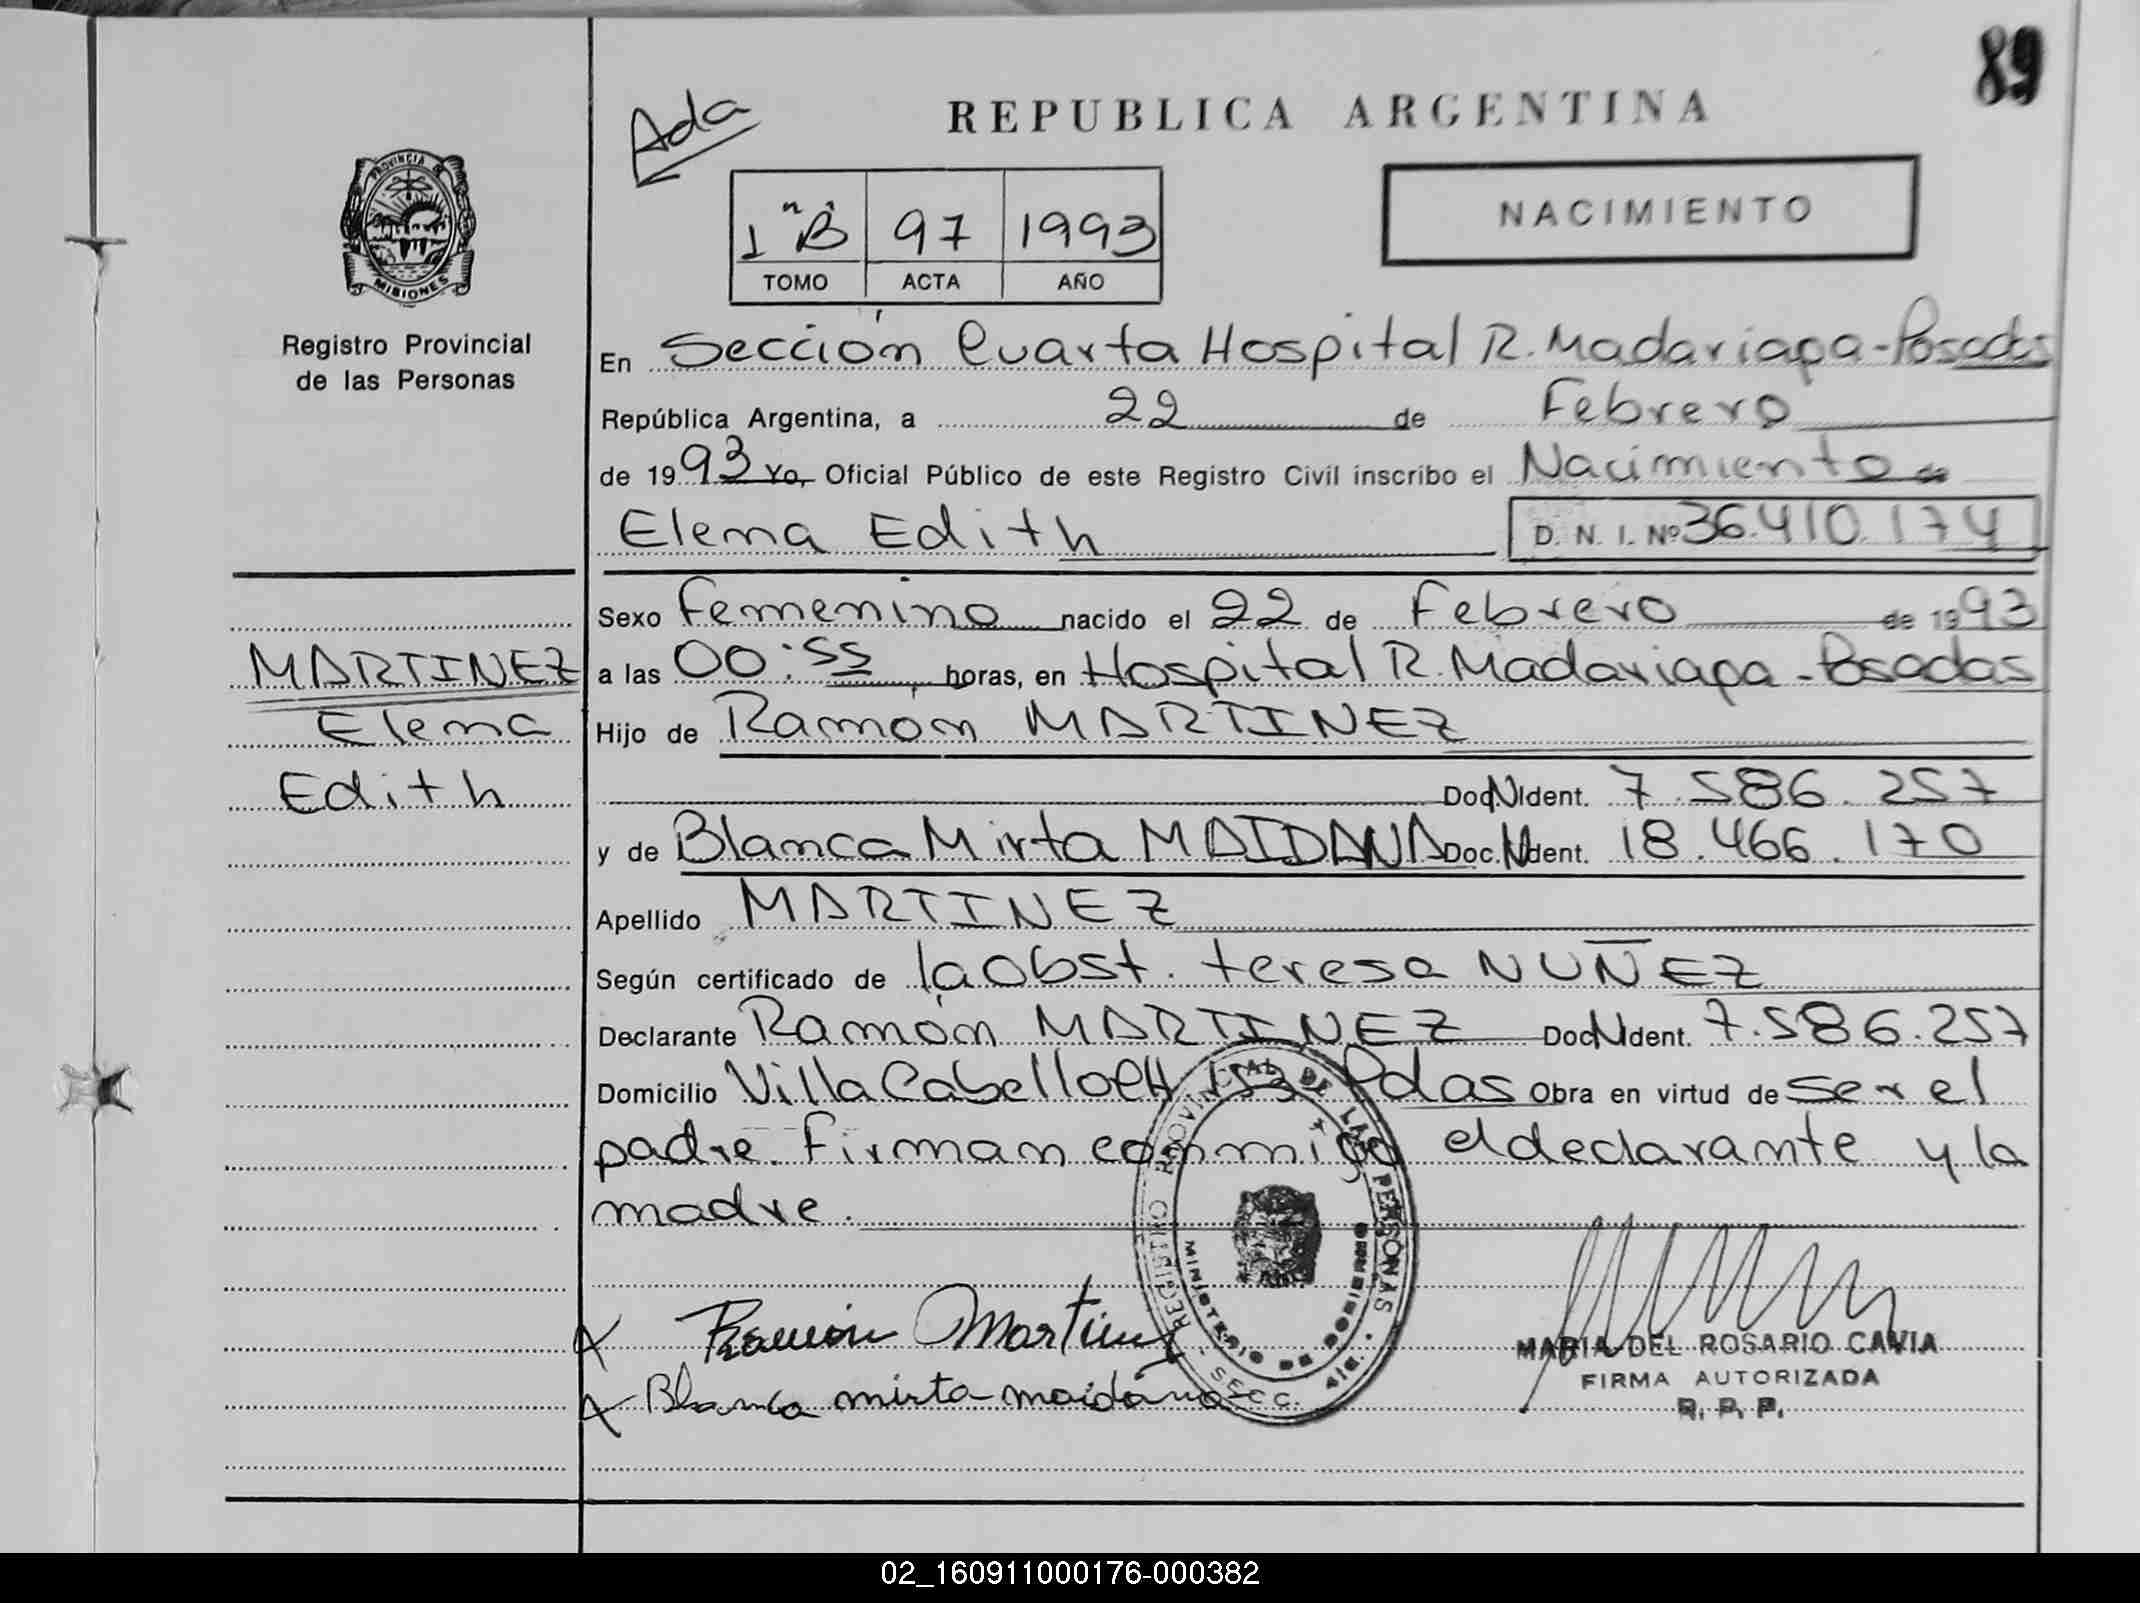 89
Ada
REPUBLICA ARGENTINA
PROVINCIA DE
MISIONES
Registro Provincial
de las Personas
1º"B" 97 1993
TOMO ACTA AÑO
NACIMIENTO
En Sección Cuarta Hospital R. Madariaga - Posadas
República Argentina, a 22 de Febrero
de 1993 Yo, Oficial Público de este Registro Civil inscribo el Nacimiento de
Elena Edith D. N. I. Nº 36.410.174
Sexo Femenino nacido el 22 de Febrero de 1993
a las 00:55 horas, en Hospital R. Madariaga - Posadas
Hijo de Ramón MARTINEZ
Doc N Ident. 7.586.257
y de Blanca Mirta MAIDANA Doc. N Ident. 18.466.170
Apellido MARTINEZ
Según certificado de la Obst. teresa NUÑEZ
Declarante Ramón MARTINEZ Doc N Ident. 7.586.257
Domicilio Villa Cabello CH Pdas Obra en virtud de ser el
padre. Firman conmigo el declarante y la
madre.
MARTINEZ
Elena
Edith
REGISTRO PROVINCIAL DE LAS PERSONAS
MINISTERIO DE GOBIERNO
SECC. 4ta.
Ramón Martinez
Blanca mirta maidana
MARIA DEL ROSARIO CAVIA
FIRMA AUTORIZADA
R. P. P.
02_160911000176-000382